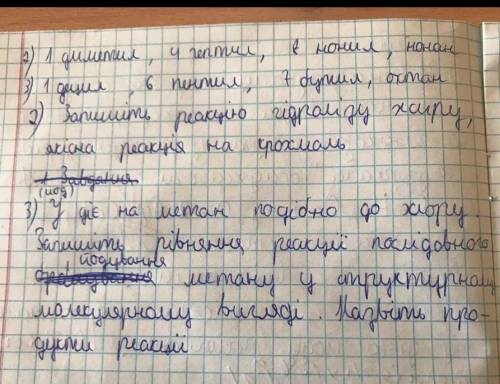 2) 1 диметил, 4 гептил, 8 нонил, нонан
3) 1 децил, 6 пентил, 7 бутил, октан
2) Запишіть реакцію гідролізу жиру,
якісна реакція на крохмаль
1 Завдання
(йод)
3) У діє на метан подібно до хлору.
Запишіть рівняння реакції послідовного
йодування
бромування метану у структурному
молекулярному вигляді. Назвіть про-
дукти реакцій